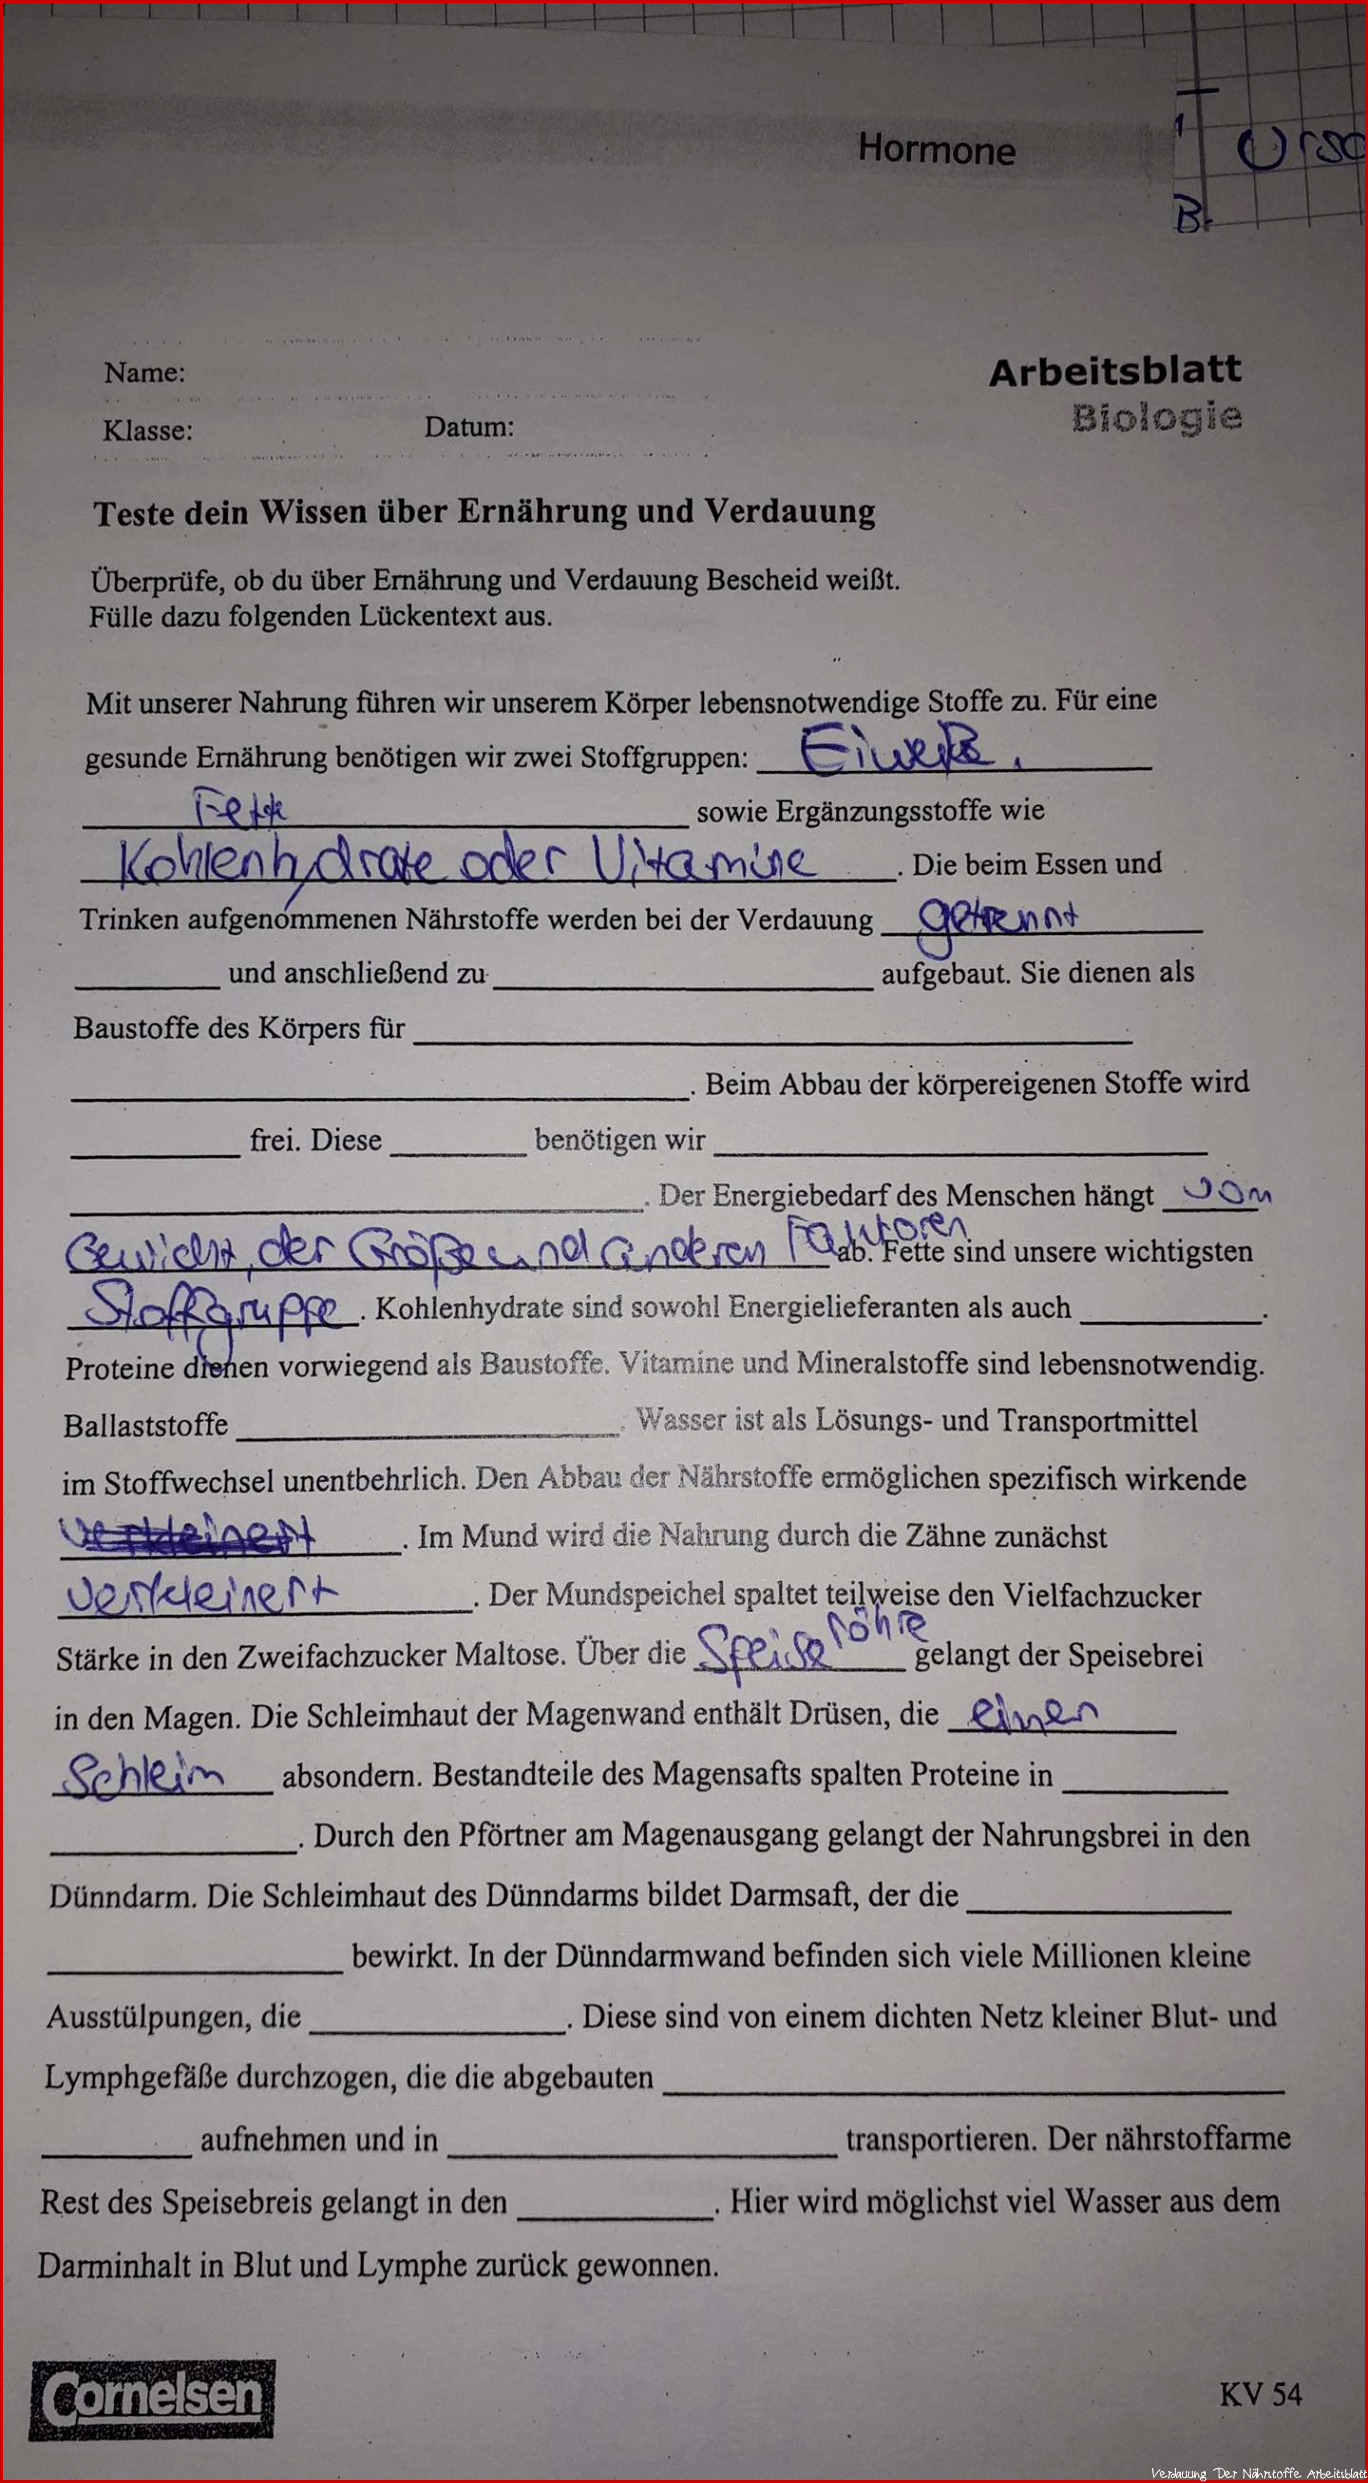 Hormone
1
B.
Name:
Arbeitsblatt
Klasse: Datum:
Biologie
Teste dein Wissen über Ernährung und Verdauung
Überprüfe, ob du über Ernährung und Verdauung Bescheid weißt.
Fülle dazu folgenden Lückentext aus.
Mit unserer Nahrung führen wir unserem Körper lebensnotwendige Stoffe zu. Für eine
gesunde Ernährung benötigen wir zwei Stoffgruppen: Eiweiß,
Fette sowie Ergänzungsstoffe wie
Kohlenhydrate oder Vitamine. Die beim Essen und
Trinken aufgenommenen Nährstoffe werden bei der Verdauung getrennt
und anschließend zu aufgebaut. Sie dienen als
Baustoffe des Körpers für
. Beim Abbau der körpereigenen Stoffe wird
frei. Diese benötigen wir
. Der Energiebedarf des Menschen hängt vom
Gewicht, der Größe und anderen Faktoren ab. Fette sind unsere wichtigsten
Stoffgruppe. Kohlenhydrate sind sowohl Energielieferanten als auch .
Proteine dienen vorwiegend als Baustoffe. Vitamine und Mineralstoffe sind lebensnotwendig.
Ballaststoffe . Wasser ist als Lösungs- und Transportmittel
im Stoffwechsel unentbehrlich. Den Abbau der Nährstoffe ermöglichen spezifisch wirkende
verkleinert. Im Mund wird die Nahrung durch die Zähne zunächst
verkleinert. Der Mundspeichel spaltet teilweise den Vielfachzucker
Stärke in den Zweifachzucker Maltose. Über die Speiseröhre gelangt der Speisebrei
in den Magen. Die Schleimhaut der Magenwand enthält Drüsen, die einen
Schleim absondern. Bestandteile des Magensafts spalten Proteine in
. Durch den Pförtner am Magenausgang gelangt der Nahrungsbrei in den
Dünndarm. Die Schleimhaut des Dünndarms bildet Darmsaft, der die
bewirkt. In der Dünndarmwand befinden sich viele Millionen kleine
Ausstülpungen, die . Diese sind von einem dichten Netz kleiner Blut- und
Lymphgefäße durchzogen, die die abgebauten
aufnehmen und in transportieren. Der nährstoffarme
Rest des Speisebreis gelangt in den . Hier wird möglichst viel Wasser aus dem
Darminhalt in Blut und Lymphe zurück gewonnen.
Cornelsen
KV 54
Verdauung Der Nährstoffe Arbeitsblatt